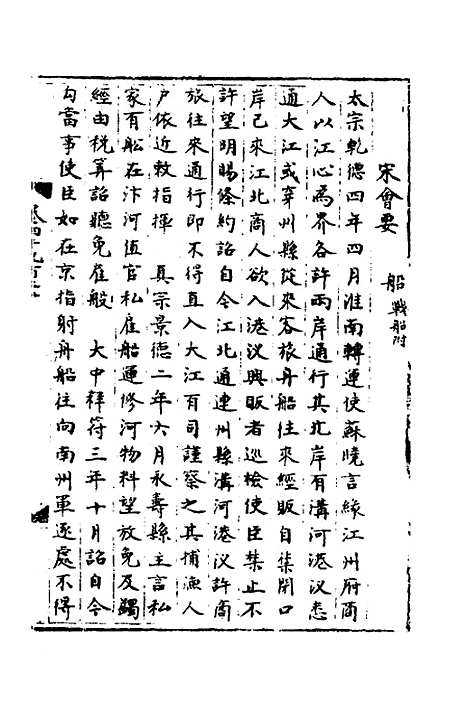 宋會要
船 戰船附
太宗乾德四年四月淮南轉運使蘇曉言緣江州府商
人以江心為界各許兩岸通行其北岸有溝河港汊悉
通大江或穿州縣從來客旅舟船往來經販自集開口
岸已來江北商人欲入港汊興販者巡檢使臣禁止不
許望明賜條約詔自今江北通連州縣溝河港汊許商
旅往來通行即不得直入大江有司謹察之其捕漁人
戶依近敕指揮 真宗景德二年六月永壽縣主言私
家有船在汴河值官私雇船運修河物料望放免及蠲
經由稅筭詔聽免雇般 大中祥符三年十月詔自今
勾當事使臣如在京指射舟船往向南州軍逐處不得